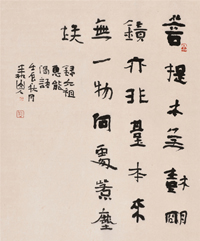 菩提本无樹明
鏡亦非臺本來
無一物何處惹塵
埃
錄六祖
惠能
偈語
秋月